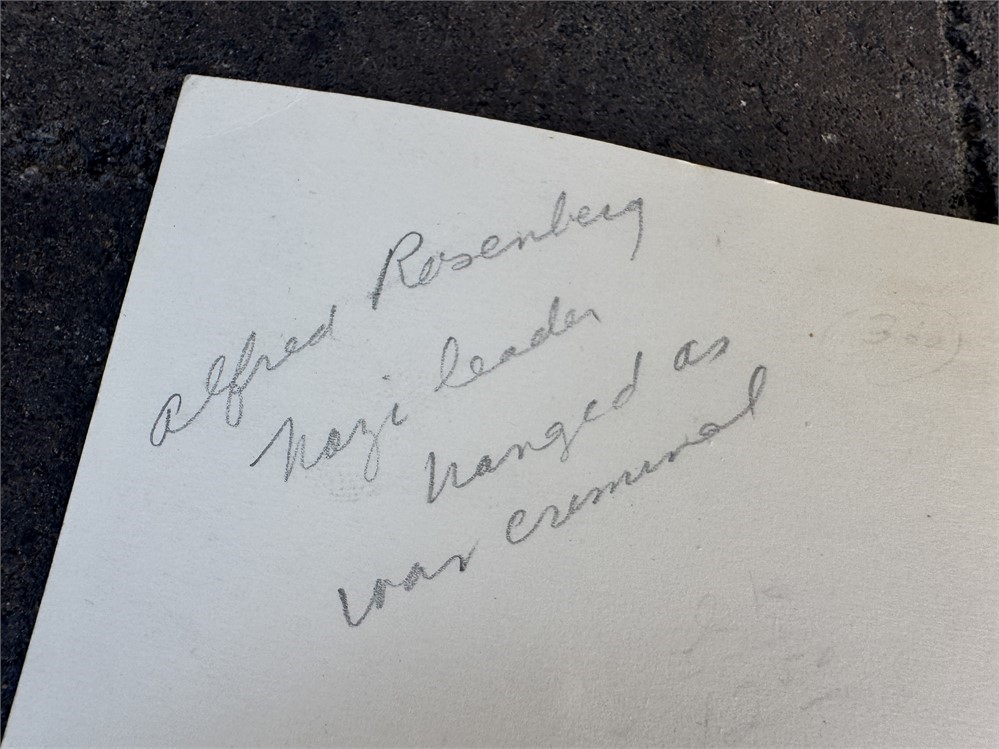 Alfred Rosenberg
Nazi leader
hanged as
war criminal